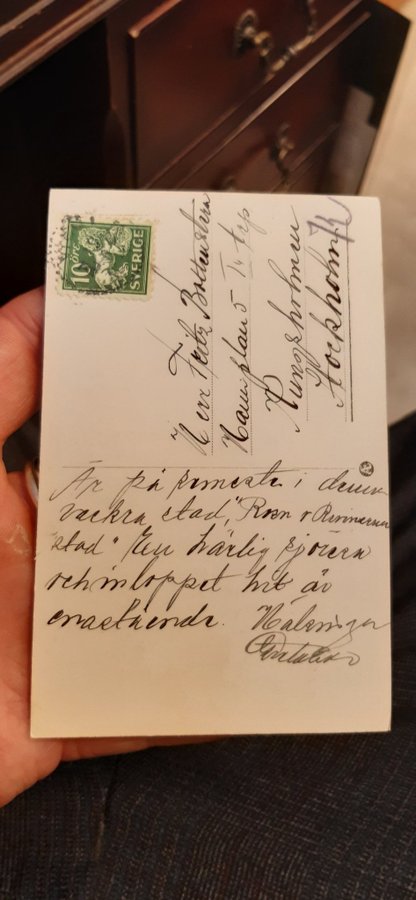 10 ÖRE
SVERIGE
Herr Fritz
Hamnplan 5 IV trp
Kungsholmen
Stockholm K
Är på semester i denna
vackra stad, "Rosor o Ruinernas
stad" En härlig sjöresa
och inloppet hit är
enastående. Hälsningar